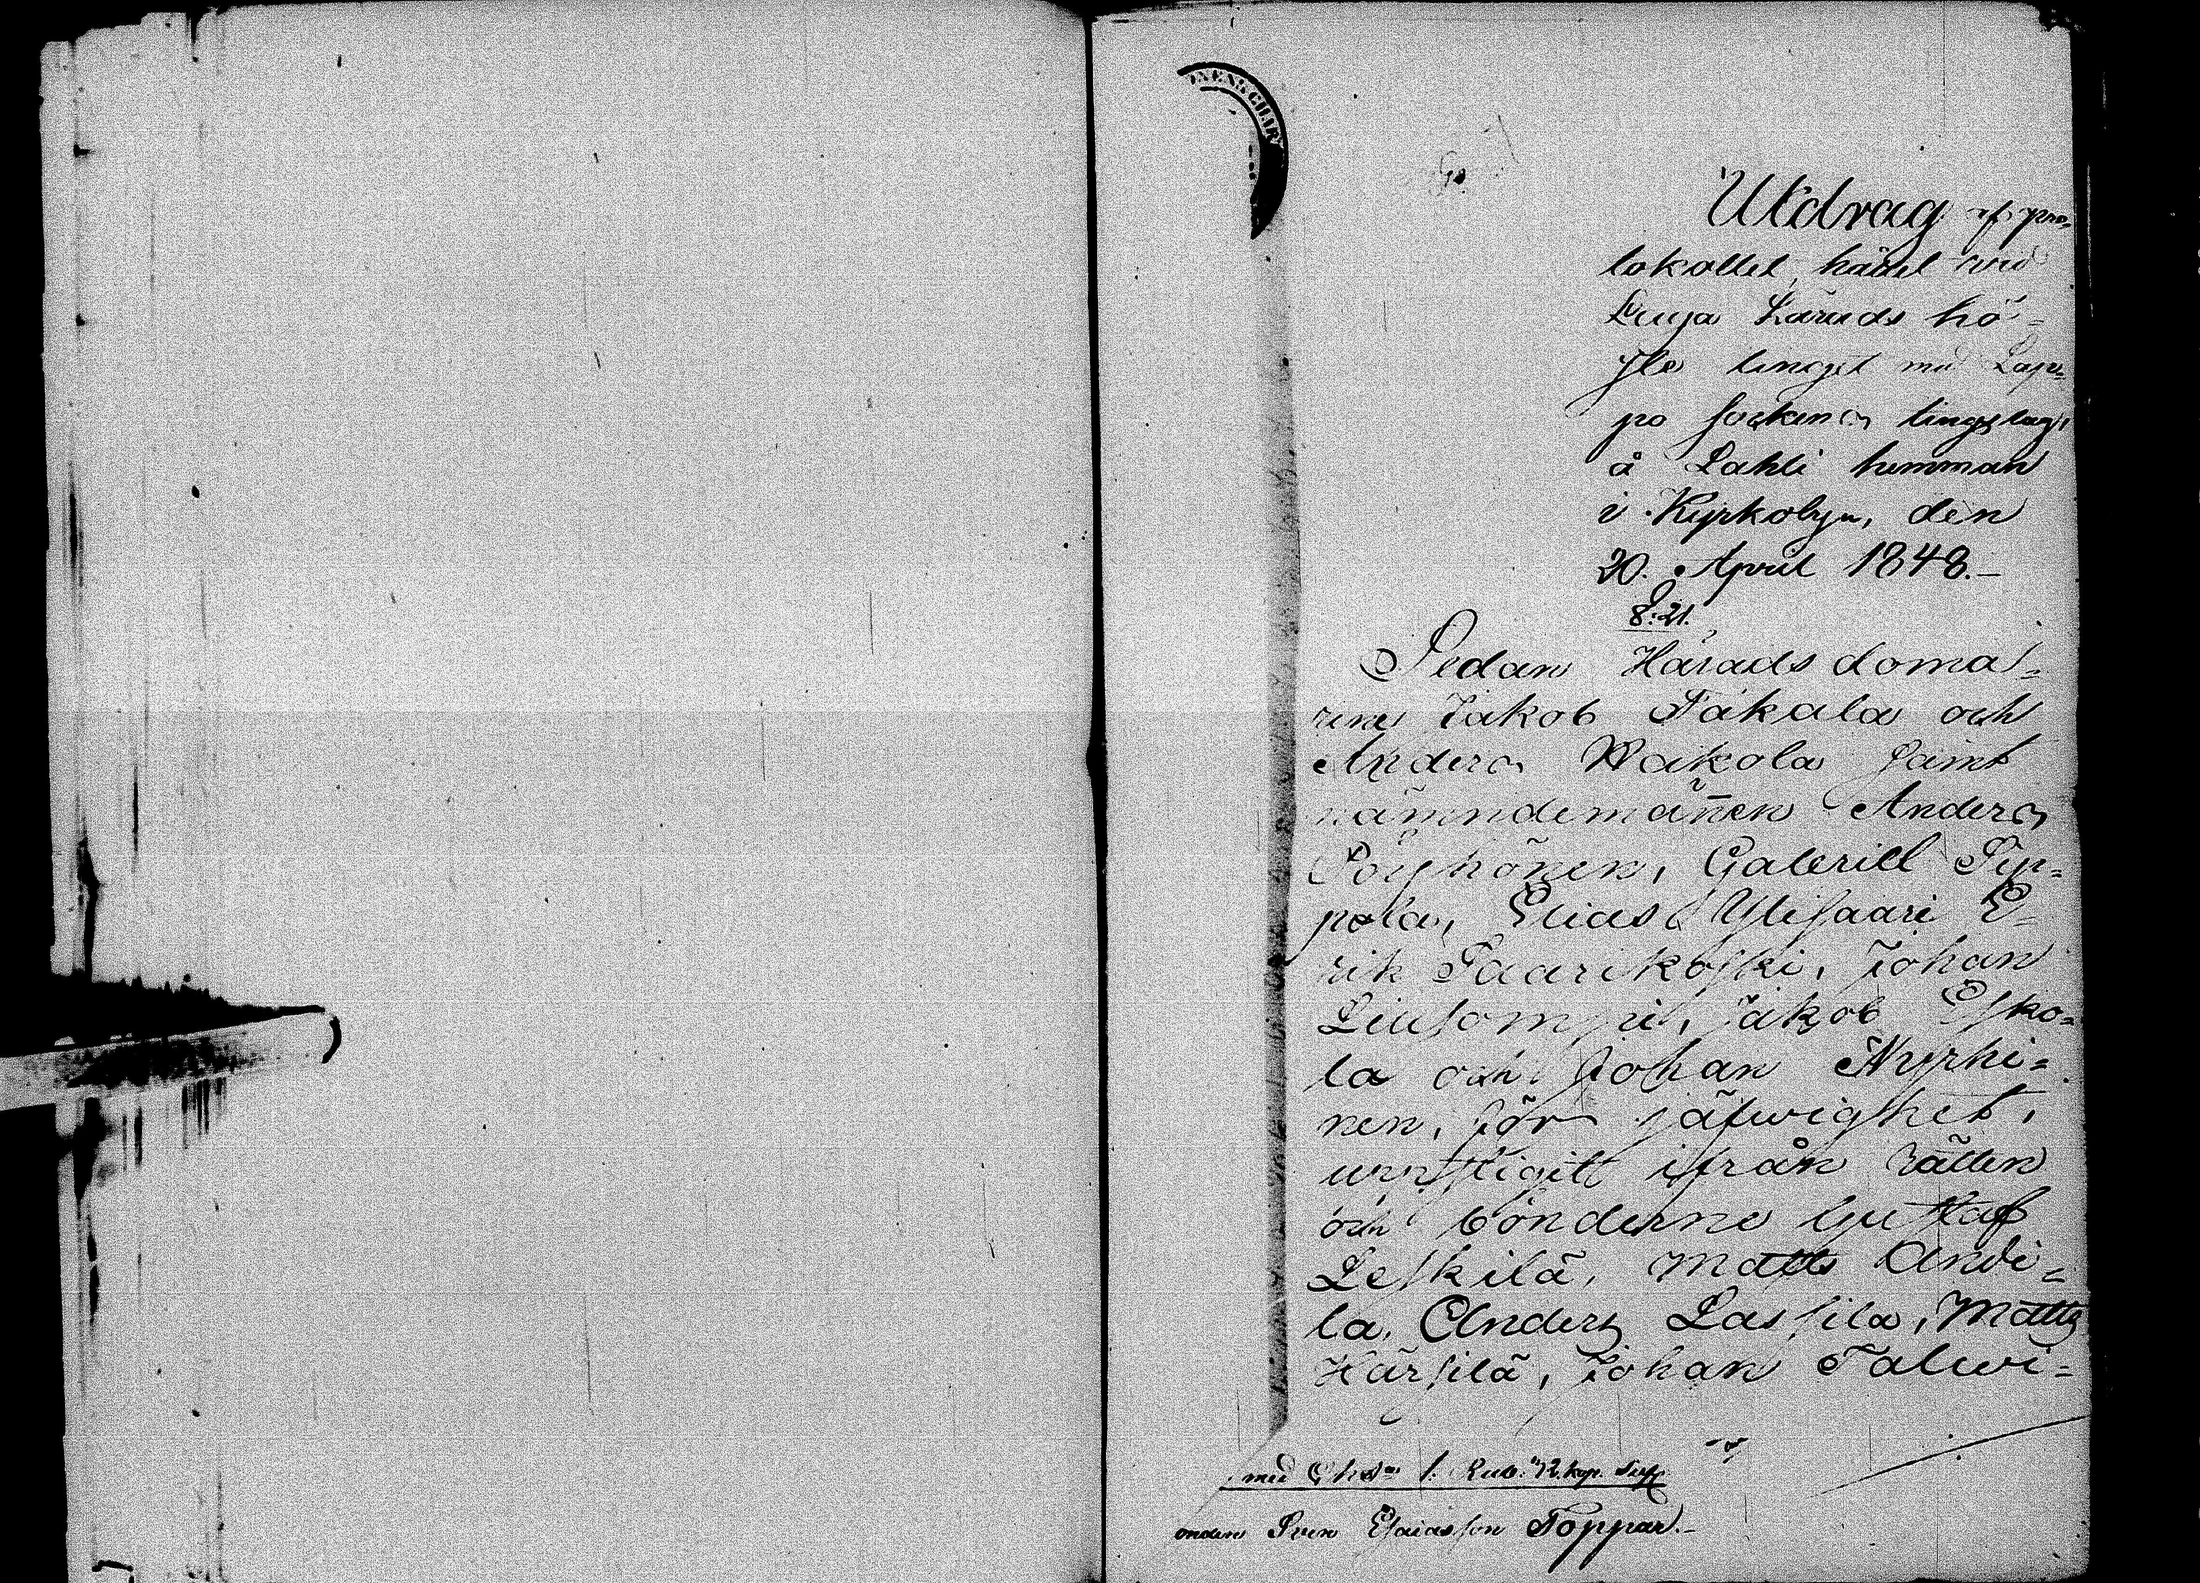 Utdrag af pro-
tokollet, hållet wid
laga Härads hö-
ste tinget med Lap-
po sockens tingslag,
å Lahti hemman
i Kyrkobyn, den
20. April 1848.–
§. 21.
Sedan Härads doma-
rene Jakob Takala och
Anders Wakola samt
nämndemännen Anders
Pöyhönen, Gabriel Syp-
pola, Elias Ylisaari E-
rik Saarikoski, Johan
Liusompi, Jakob Esko-
la och Johan Nyrhi-
nen, för jäfwighet,
uppstigit ifrån Rätten
och bönderne Gustaf
Leskilä, Matts Andi-
la, Anders Lassila, Matts
Härsilä, Johan Talwi-
med Cha 1. Rub. 72. kop. Silf
onden Sven Esaiasson Töppar.–